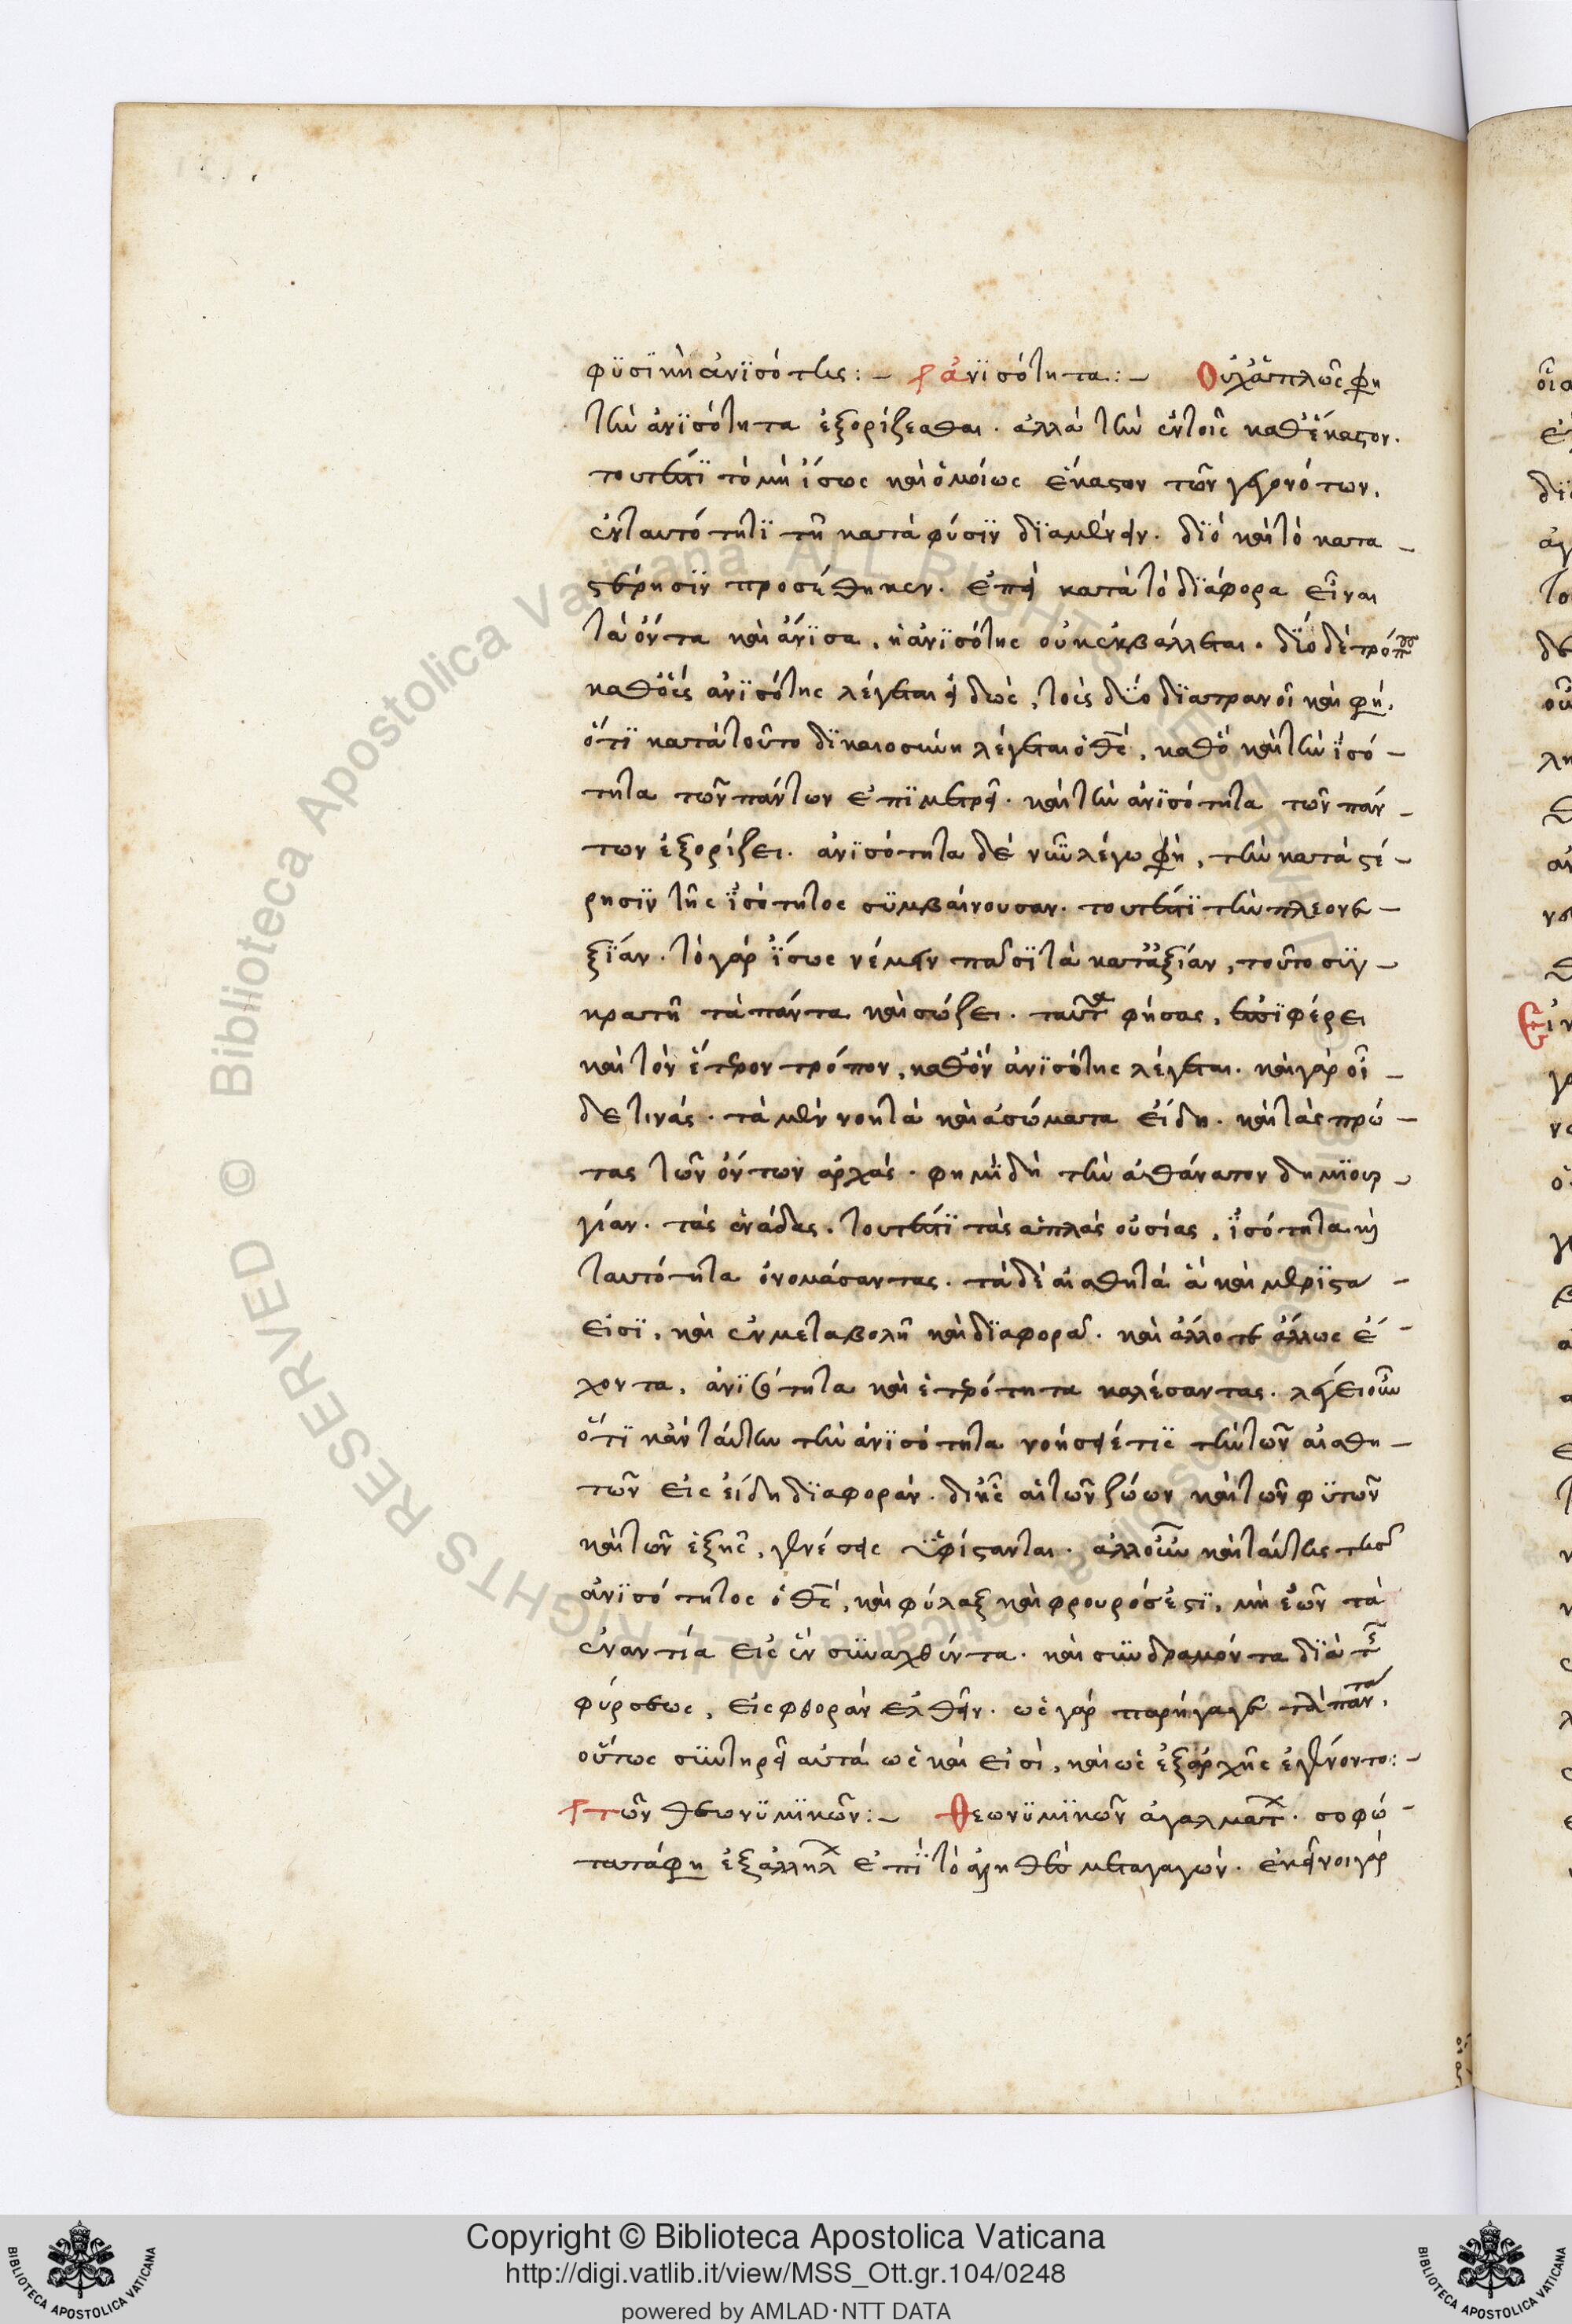 φϋσϊκὴ ἀνϊσότης :– ἀνϊσότητα :– Οὐχ ἁπλῶς φη
τὴν ἀνϊσότητα ἐξορίζεσθαι · ἀλλὰ τὴν ἐν τοῖς καθ' ἕκαστον ·
τουτέστϊ τὸ μὴ ἴσως καὶ ὁμοίως ἕκαστον τῶν γεγονότων,
ἐν ταυτότητϊ τῆ κατὰ φύσϊν δϊαμένειν · δϊὸ καὶ τὸ κατα –
στέρησϊν προσέθηκεν · ἐπεὶ κατὰ τὸ δϊάφορα εἶναι
τὰ ὄντα καὶ ἄνϊσα, ἡ ἀνϊσότης οὐκ ἐκβάλλεται · δϊό δὲ τρόπους
καθ' οὓς ἀνϊσότης λέγεται εἰδὼς, τοὺς δύο δϊατρανοῖ καὶ φη,
ὅτϊ κατὰ τοῦτο δϊκαιοσύνη λέγεται ὁ θς, καθὸ καὶ τὴν ϊσό –
τητα τῶν πάντων ἐπϊμετρεῖ · καὶ τὴν ἀνϊσότητα τῶν πάν –
των ἐξορίζει · ἀνϊσότητα δὲ νῦν λέγω φη, τὴν κατὰ στέ –
ρησϊν τῆς ϊσότητος συμβαίνουσαν · τουτέστϊ τὴν πλεονε –
ξϊάν · τὸ γὰρ ϊσως νέμειν πᾶσϊ τὰ κατ' ἀξϊάν, τοῦτο συγ –
κρατῆ τὰ πάντα καὶ σώζει · ταῦτα φήσας, ἐπϊφέρει
καὶ τὸν ἕτερον τρόπον, καθ' ὃν ἀνϊσότης λέγεται · καὶ γὰρ οἶ –
δε τινάς · τὰ μὲν νοητὰ καὶ ἀσώματα εἴδη · καὶ τὰς πρώ –
τας τῶν ὄντων ἀρχάς · φημὶ δὴ τὴν ἀθάνατον δημϊουρ –
γίαν · τὰς ἑνάδας · τουτέστϊ τὰς ἁπλὰς οὐσίας, ϊσότητα καὶ
ταυτότητα ὀνομάσαντας · τὰ δὲ αἰσθητὰ ἃ καὶ μερϊστα –
εἰσϊ, καὶ ἐν μεταβολῆ καὶ δϊαφορᾶ · καὶ ἄλλοτε ἄλλως ἔ –
χοντα, ἀνϊσότητα καὶ ἑτερότητα καλέσαντας · λέγει οὖν
ὅτϊ κἂν ταύτην τὴν ἀνϊσότητα νοήσειέ τϊς τὴν τῶν αἰσθη –
τῶν εἰς εἴδη δϊαφοράν · δι' ἧς αἱ τῶν ζώων καὶ τῶν φϋτῶν
καὶ τῶν ἑξῆς, γενέσεις ϋφίστανται · ἀλλ' οὖν καὶ ταύτης τῆς
ἀνϊσότητος ὁ θς, καὶ φύλαξ καὶ φρουρός ἐστϊ, μὴ ἐῶν τὰ
ἐναντία εἰς ἓν συναχθέντα · καὶ συνδραμόντα δϊὰ τῆς
φύρσεως, εἰς φθορὰν ἐλθεῖν · ὡς γὰρ παρήγαγε τὰ πάντα,
οὕτως συντηρεῖ αὐτὰ ὡς καὶ εἰσὶ, καὶ ὡς ἐξαρχῆς ἐγένοντο :–
τῶν θεωνϋμϊκῶν :– Θεωνϋμϊκῶν ἀγαλμάτ · σοφώ –
τατά φη ἐξ ἀλληλ ἐπὶ τὸ ἀληθὲς μεταγαγών · ἐκεῖνοι γὰρ
Copyright © Biblioteca Apostolica Vaticana
http://digi.vatlib.it/view/MSS_Ott.gr.104/0248
powered by AMLAD·NTT DATA